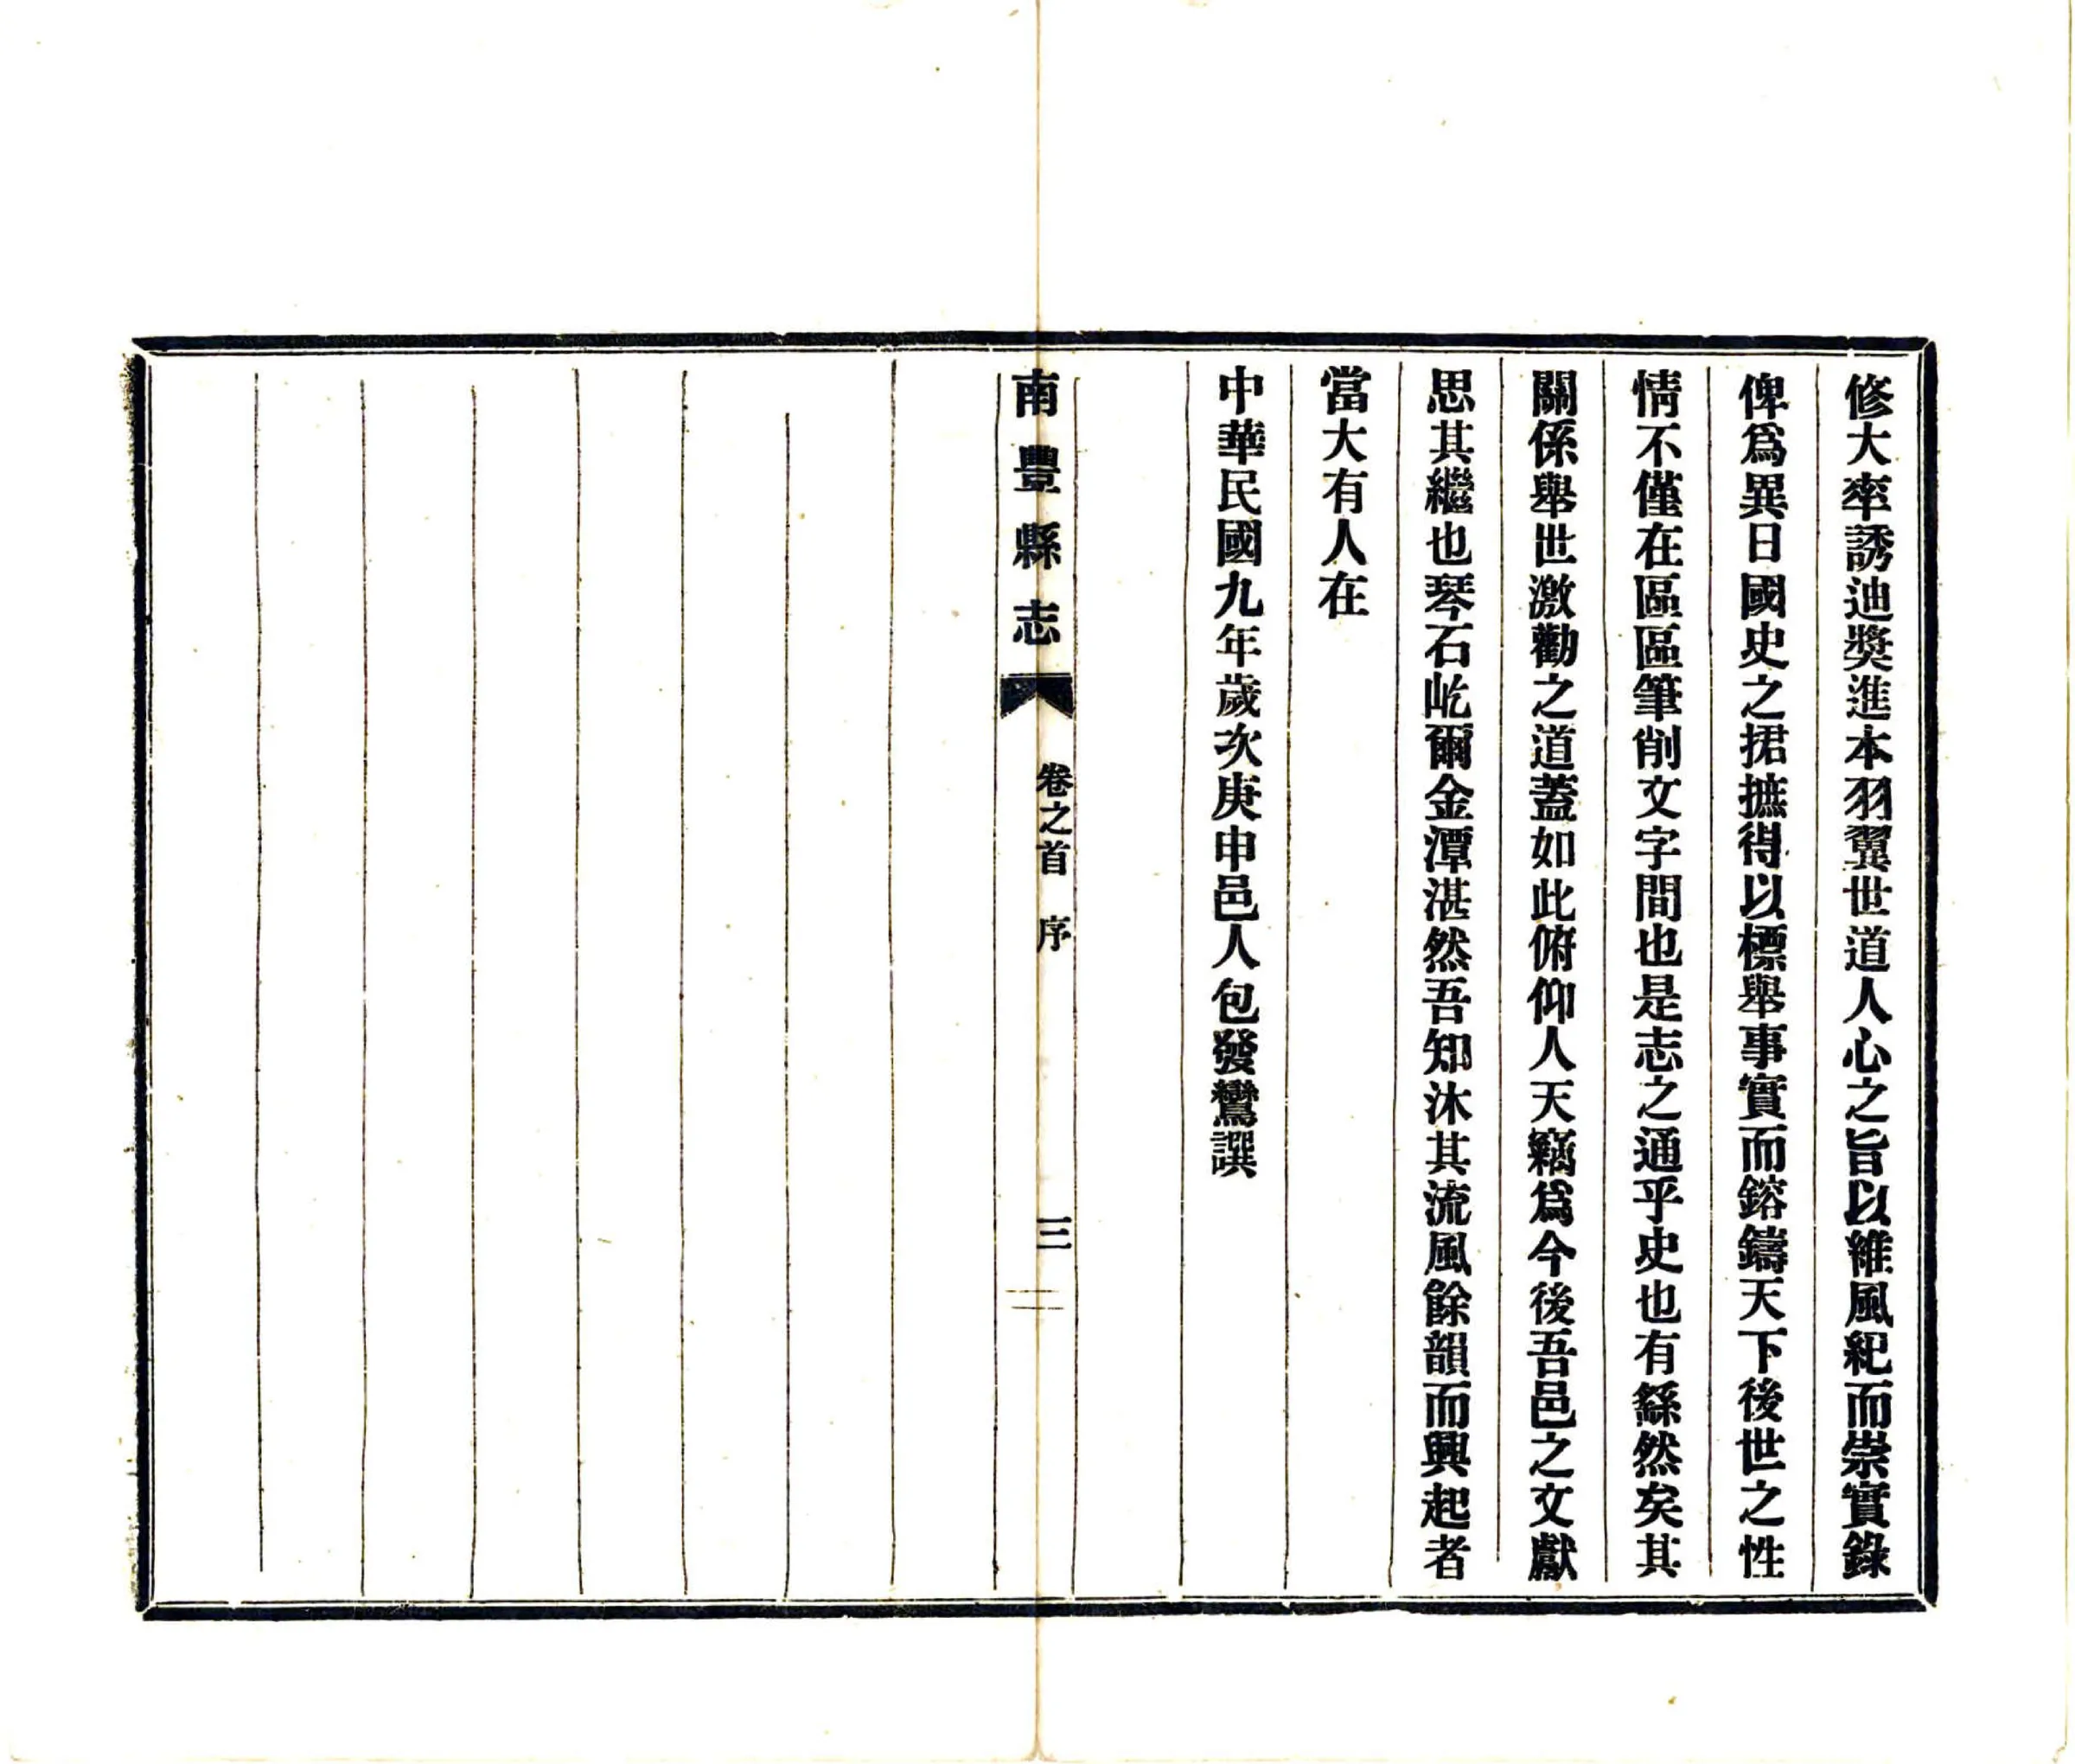 修大率誘迪獎進本羽翼世道人心之旨以維風紀而崇實錄
俾爲異日國史之捃摭得以標舉事實而鎔鑄天下後世之性
情不僅在區區筆削文字間也是志之通乎史也有繇然矣其
關係舉世激勸之道蓋如此俯仰人天竊爲今後吾邑之文獻
思其繼也琴石屹爾金潭湛然吾知沐其流風餘韻而興起者
當大有人在
中華民國九年歲次庚申邑人包發鸞譔
南豐縣志
卷之首 序
三